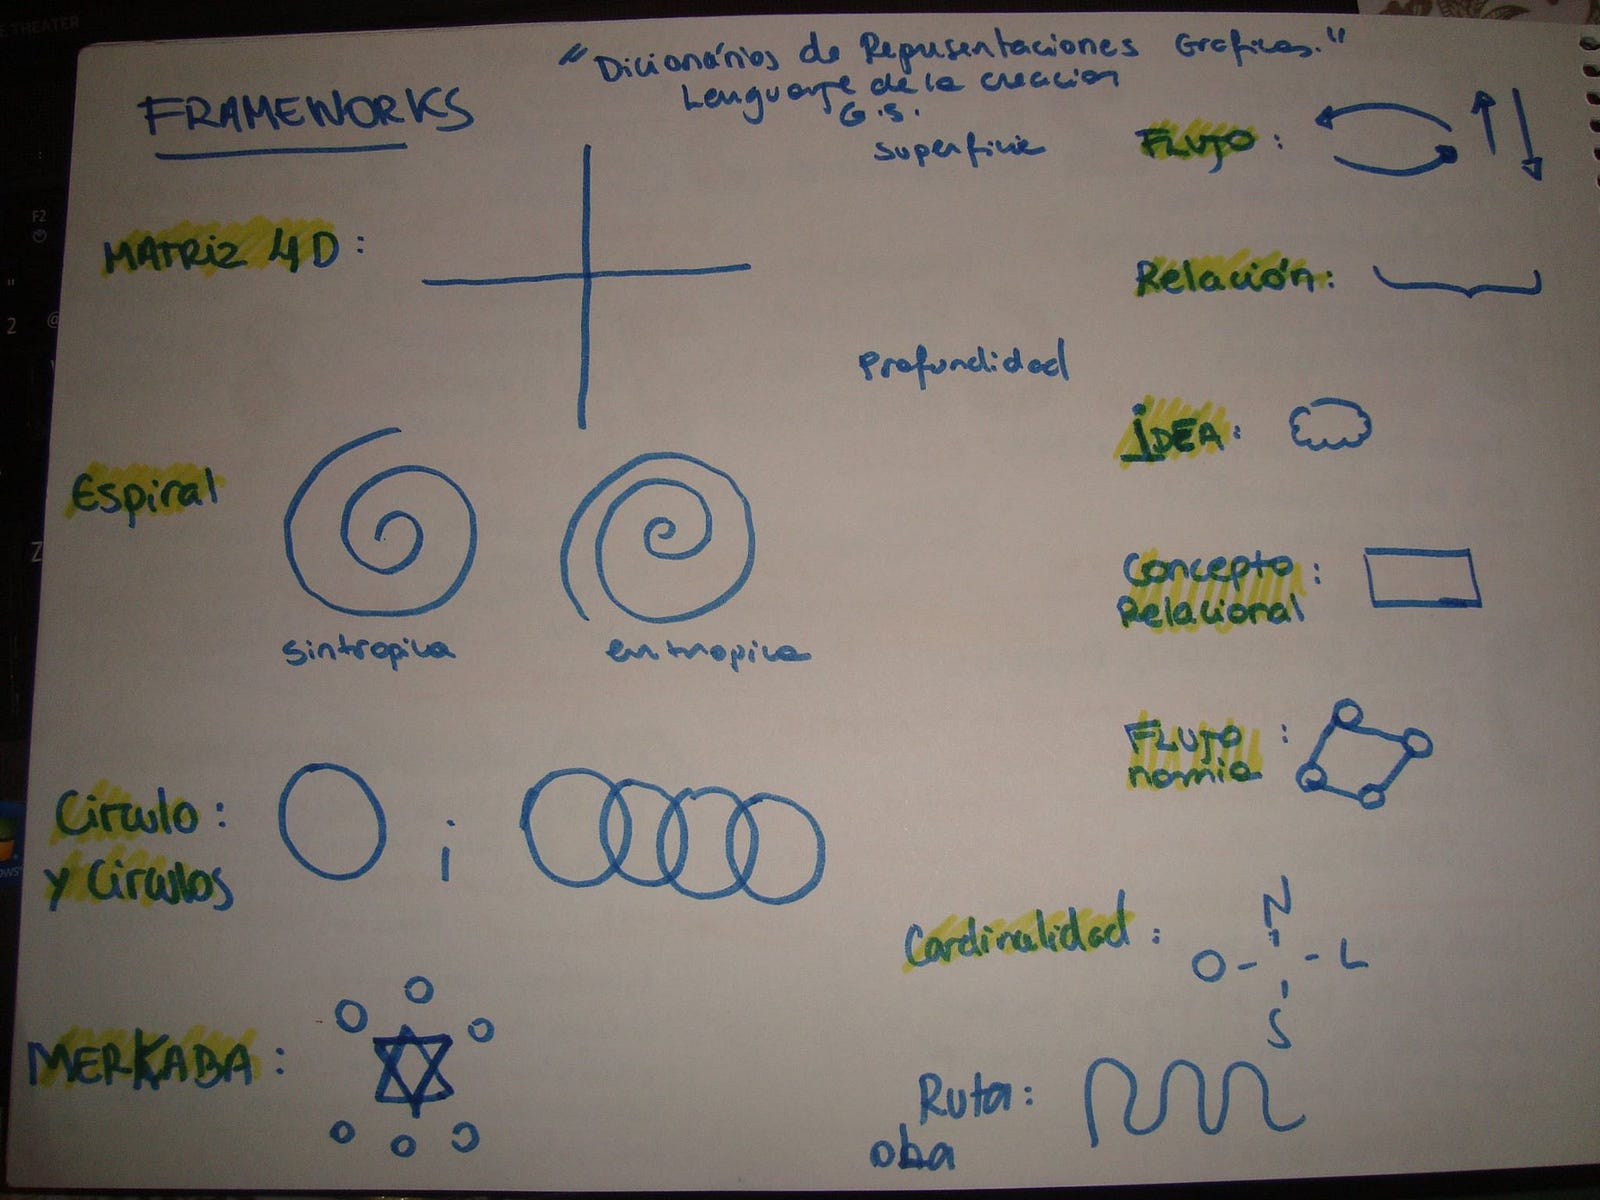 "Dicionários de Representaciones Graficas."
Lenguarje de la creacion
G.S.
FRAMEWORKS
superficie
FLUJO:
MATRIZ 4D:
Relación:
Profundidad
IDEA:
Espiral
sintropica
entropica
Concepto:
Relacional
FLUJO:
nomia
Círculo:
y Círculos
i
Cardinalidad:
N
O - - L
S
MERKABA:
Ruta:
oba